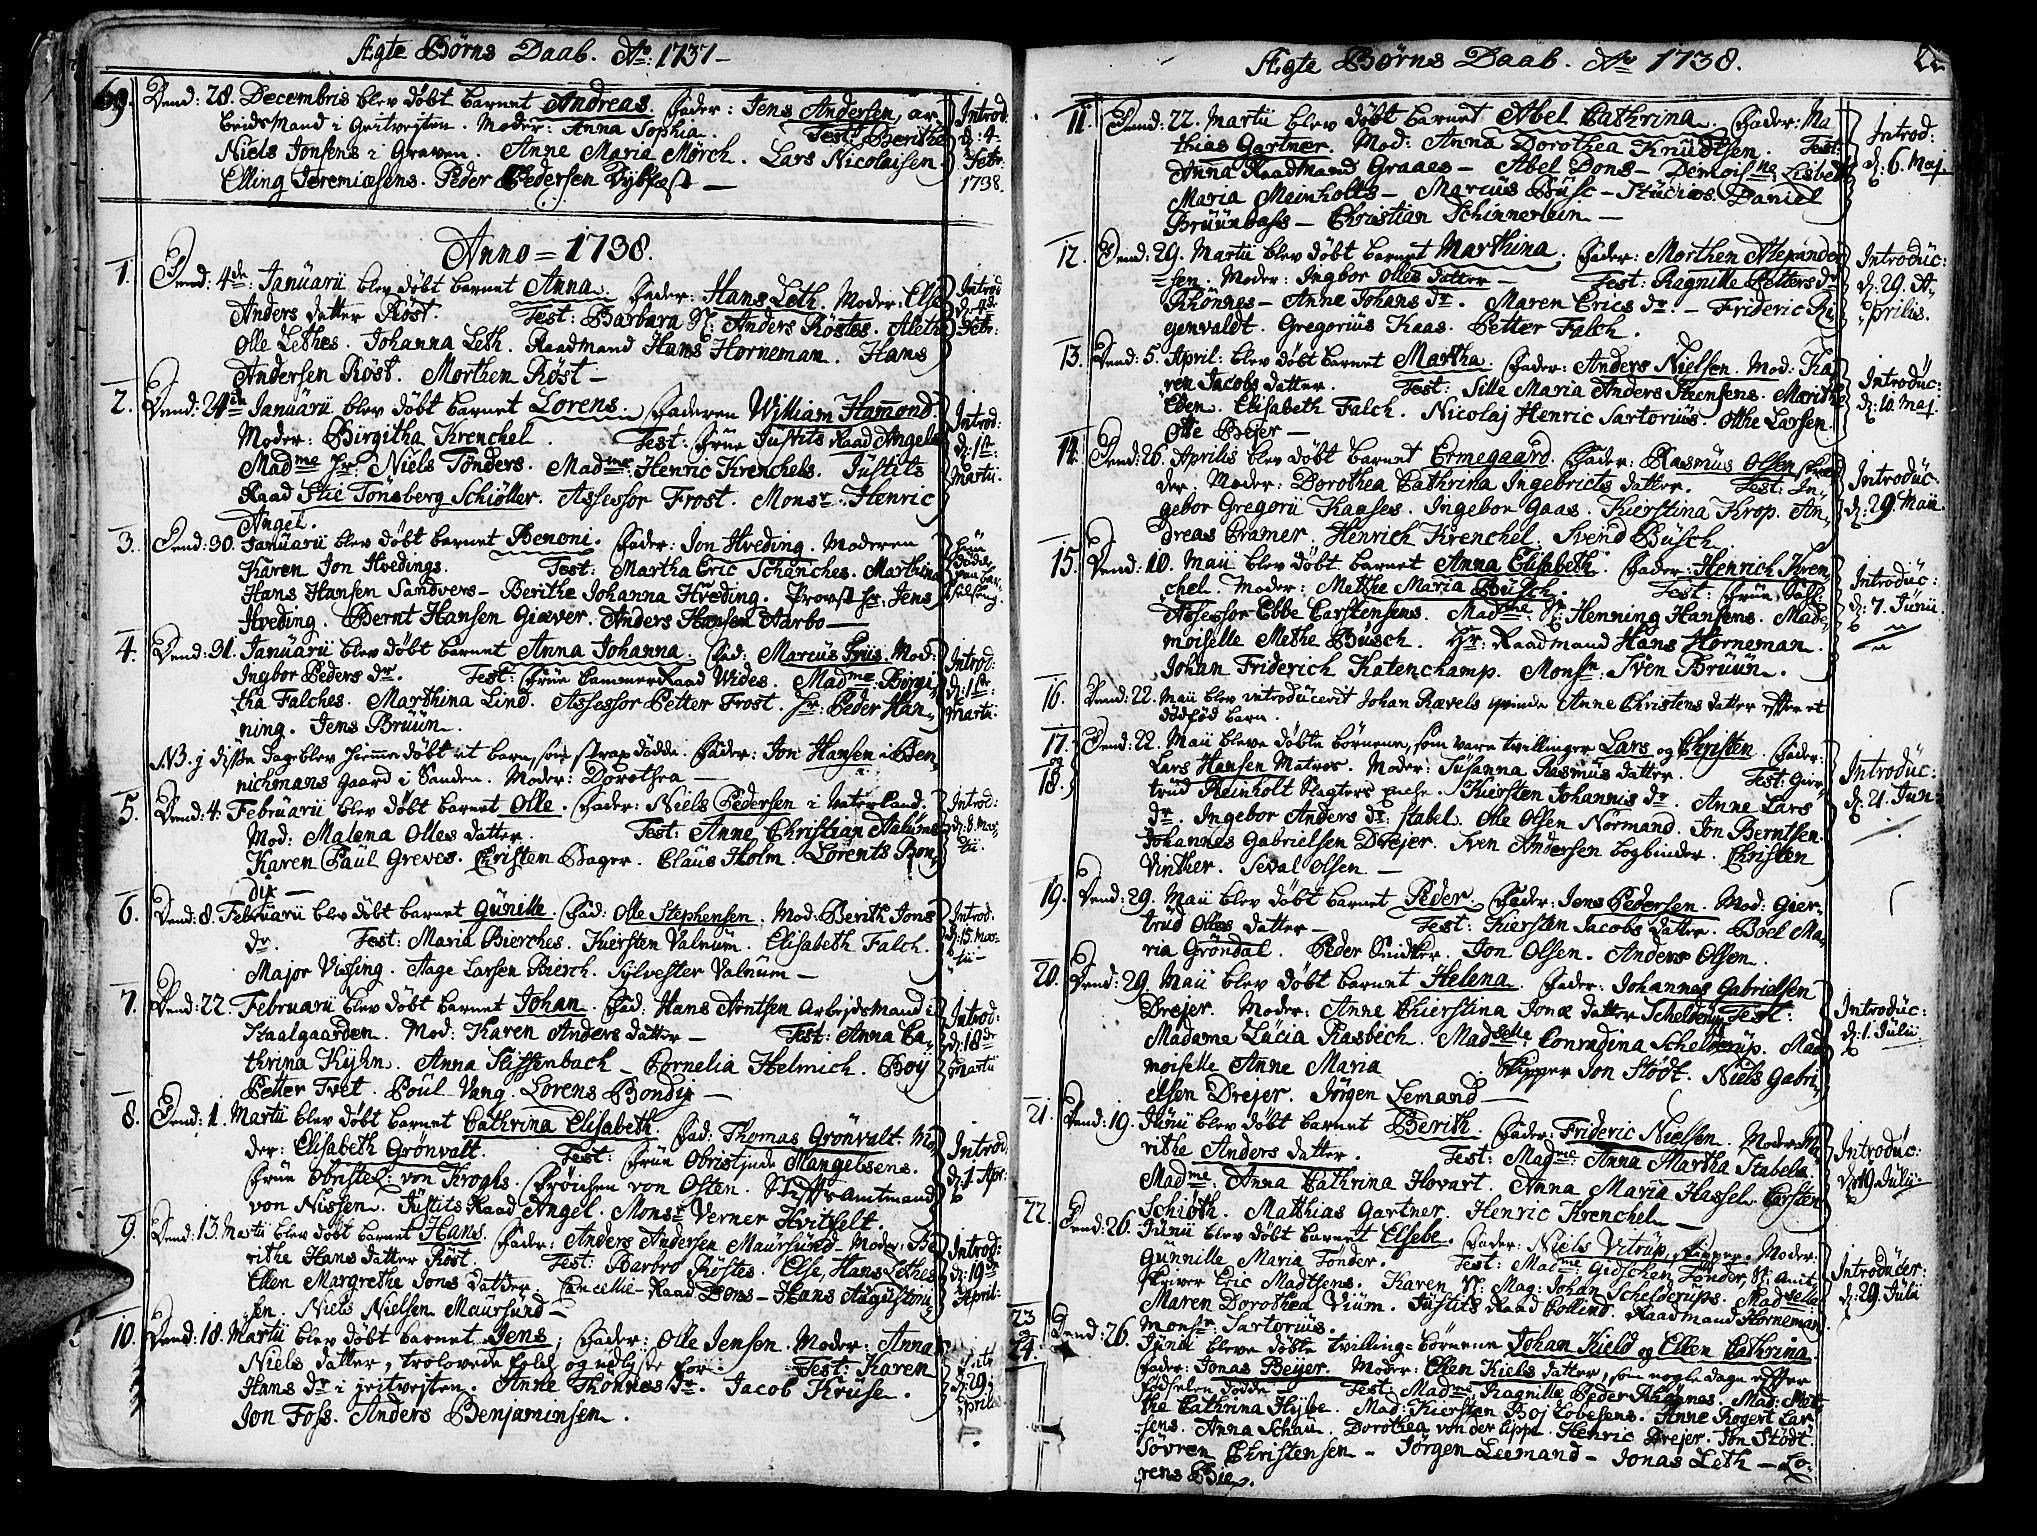 Ægte Børns Daab. Ao: 1737-
69. Dend: 28. Decembris blev døbt barnet Andreas. Fader: Jens Andersen, ar-
beidsMand i Geitvejten. Moder: Anna Sophia. Test: Berithe
Niels Jonsens i Graven. Anne Maria Mørch. Lars Nicolaisen
Elling Jeremiæsens. Peder Pedersen Dybfæst —
Introd:
d: 4.
Febr:
1738.
Anno = 1738.
1. Dend: 4de Januarii blev døbt barnet Anna. Fader: Hans Leth. Moder: Else
Anders datter Røst. Test: Barbara Sr: Anders Røstes. Aleth
Olle Lethes. Johanna Leth. Raadmand Hans Horneman. Hans
Andersen Røst. Morthen Røst —
Introd
Febr:
2. Dend: 24de Januarii blev døbt barnet Lorens. Faderen William Hammond.
Moder: Birgitha Krenchel. Test: Frue Justits Raad Angels
Madme Hr: Niels Tønders. Madme: Henric Krenchels. Justits
Raad Stic Tønsberg Schiøller. Assessor Frost. Monsr. Henric
Angel.
Introd:
d: 1st:
Martii.
3. Dend: 30. Januarii blev døbt barnet Benoni. Fader: Jon Hveding. Moderen
Karen Jon Hvedings. Test: Martha Eric Schanches. Marthina
Hans Hansen Sandvers- Berithe Johanna Hveding. Provst Hr: Jens
Hveding. Bernt Hansen Giæver. Anders Hansen Aarbo —
4. Dend: 31. Januarii blev døbt barnet Anna Johanna. Fad: Marcus Friis. Mod:
Ingbor Peders dr. Test: Frue CammerRaad Wides. Madme: Birgi-
tha Falches. Marthina Lind. Assessor Petter Frost. Hr: Peder Han-
ning. Jens Bruun.
Introd:
d: 1st:
Martii.
NB. j disse dage blev hiemmedøbt et barn, som strax dødde. Fader: Jon Hansen i Ben-
nichmans Gaard i Sanden. Moder: Dorothea —
5. Dend: 4. Februarii blev døbt barnet Olle. Fader: Niels Pedersen i Vaterland.
Mod: Malena Olles datter. Test: Anne Christian Aalums
Karen Paul Greves. Christen Bager. Claus Holm. Lorents Bon-
dix —
Introd:
d: 8. Mar-
tii.
6. Dend: 8. Februarii blev døbt barnet Gunille. Fad: Olle Stephensen. Mod: Berith Jons
dr. Test: Maria Bierches. Kiersten Valnum. Elisabeth Falch.
Major Vissing. Aage Larsen Bierch. Sylvester Valnum —
Introd.
d: 15. Mar-
tii —
7. Dend: 22. Februarii blev døbt barnet Johan. Fad: Hans Arntsen Arbejdsmand i
Staalgaarden. Mod: Karen Anders datter — Test: Anna Ca-
thrina Kyhn. Anna Stiffenbach — Cornelia Helmich. Boy
Petter Tvet. Poul Vang. Lorens Bondix —
Introd:
d: 18de
Martii
8. Dend: 1. Martii blev døbt barnet Cathrina Elisabeth. Fad: Thomas Grønvalt. Mo-
der: Elisabeth Grønvalt. Test: Frue Obristinde Mangelsens.
Frue Obristel: von Kroghs. Frøichen von Osten. Stifts Amtmand
von Nissen. Justits Raad Angel. Monsr Verner Hvitfelt.
Introd
d: 1 Apr:
9. Dend: 13. Martii blev døbt barnet Hans. Fader: Anders Andersen Maursund - Moder: Be-
rithe Hans datter Røst. Test: Barbro Røstes. Else Hans Lethes
Ellen Margrethe Jons datter. Cancellie-Raad Dons - Hans Augustinu-
sen. Niels Nielsen Maursund —
Introd:
d: 19de
April:
10. Dend: 18. Martii blev døbt barnet Jens, Fader: Olle Jensen. Moder: Anna
Niels datter, trolovede fold og udlyste for Test: Karen
Hans dr i jeitvejten. Anne Thønnes dr. Jacob Kruse.
Jon Foss. Anders Benjaminsen.
d: 29.
prilis
Ægte Børns Daab. Ao 1738.
22
11. Dend: 22. Martii blev døbt barnet Abel Cathrina. Fader: Ma
thias Gartner. Mod: Anna Dorothea Knudtsen. Test:
Anna Raadmand Graaes — Abel Dons — Demoislle: Lisbeth
Maria Meinholts — Marcus Busc — Stucias. Daniel
Bruunbass — Christian Schinnerlein —
Introd:
d: 6. Maj.
12. Dend: 29. Martii blev døbt barnet Marthina. Fader: Morthen Alexander
sen. Moder: Ingbor Olles datter — Test: Ragnille Petters dr
Rhønnes — Anne Johans dr. Maren Erics dr. — Frideric Ri
genvaldt. Gregorius Kaas. Petter Falch.
Introduc:
d: 29. A-
prilis.
13. Dend: 5. April: blev døbt barnet Martha. Fader: Anders Nielsen. Mod: Ka-
ren Jacobs datter. Test: Sille Maria Anders Steensens. Marithe
Eben. Elisabeth Falch. Nicolaj Henric Sartorius. Otthe Larsen.
Otte Bejer —
Introduc:
d: 10 Maj.
14. Dend: 26. Aprilis blev døbt barnet Ermegaard. Fader: Rasmus Olsen
der. Moder: Dorothea Cathrina Ingebricts datter. Test: In-
gebor Gregorii Kaases. Ingebor Gaas. Kierstina Krop. An-
dreas Cramer. Henrich Krenchel. Svend Busch
Introduc.
d: 29. Maii.
15. Dend: 10. Maii blev døbt barnet Anna Elisabeth. Fader: Henrich Kren-
chel. Moder: Methe Maria Busch. Test: Frue
Assessor Ebbe Carstensens. Madme: Sr: Henning Hansens. Made-
moiselle Methe Busch. Hr: Raadmand Hans Horneman.
Johan Friderich Katenchamp. Monsr: Sven Bruun.
Introduc:
d: 7. Junii.
16. Dend: 22. Maii blev introducerit Johan Rævels qvinde Anne Christens datter efter et
dødfød barn.
17. og 18. Dend: 22. Maii bleve døbte børnene, som vare tvillinger Lars og Christen. Fader:
Lars Hansen Matros. Moder: Susanna Rasmus datter. Test: Gier-
trud Reinholt Slagters enke. Kiersten Johannis dr. Anne Lars
dr. Ingebor Anders dr: Stabel. Ole Olsen Normand. Jon Berntsen.
Johannes Gabrielsen Drejer. Sven Andersen bogbinder. Christen
Vinther. Seval Olsen —
Introduc:
d: 21. Jun:
19. Dend: 29. Maii blev døbt barnet Peder. Fader: Jens Pedersen. Mod: Gier-
trud Olles datter — Test: Kiersten Jacobs datter. Boel Ma-
ria Grøndal. Peder Snidker. Jon Olsen. Anders Olsen.
20. Dend: 29. Maii blev døbt barnet Helena. Fader: Johannes Gabrielsen
Drejer. Moder: Anne Chierstina Jonæ datter Schelderup Test:
Madame Lucia Rasbech. Madselle Conradina Schelderup. Mad
moiselle Anne Maria Skipper Jon Stødt. Niels Gabri-
elsen Drejer. Jørgen Lemand —
Introduc:
d: 1. Julii
21. Dend: 19. Junii blev døbt barnet Berith. Fader: Frideric Nielsen. Moder: Ma-
rithe Anders datter. Test: Madme: Anna Martha Stabels
Madme: Anna Cathrina Hovart. Anna Maria Hassel. Carsten
Schiøth. Mathias Gartner. Henric Krenchel —
Introduc:
d: 19. Julii.
22. Dend: 26. Junii blev døbt barnet Elsebe. Fader: Niels Vitrup, Skipper. Moder:
Gunnille Maria Tønder. Test: Madme Gidschen Tønder, Sr: Amt-
skriver Eric Madtsens. Karen Sr: Mag: Johan Schelderups. Madselle
Maren Dorothea Vium. Justits Raad Collind. Raadmand Horneman
Monsr: Sartorius.
Introducer:
d: 29. Julii
23 og 24. Dend: 26. Junii bleve døbte tvilling-børnene Johan Kield og Ellen Cathrina.
Fader: Jonas Bejer. Moder: Ellen Kiels datter, som nogle dage effter
fødselen dødde — Test: Madme: Ragnille Peder Rhønnes. Mad: Met-
the Cathrina Hybe. Mad: Kiersten Boj Lobesens. Anne Rogert Lar
sens. Anna Schau. Dorothea von der Lippe. Henric Drejer. Jon Stødt.
Søvren Christensen — Jørgen Leemand — Jonas Leth — Lo-
rens Bie.